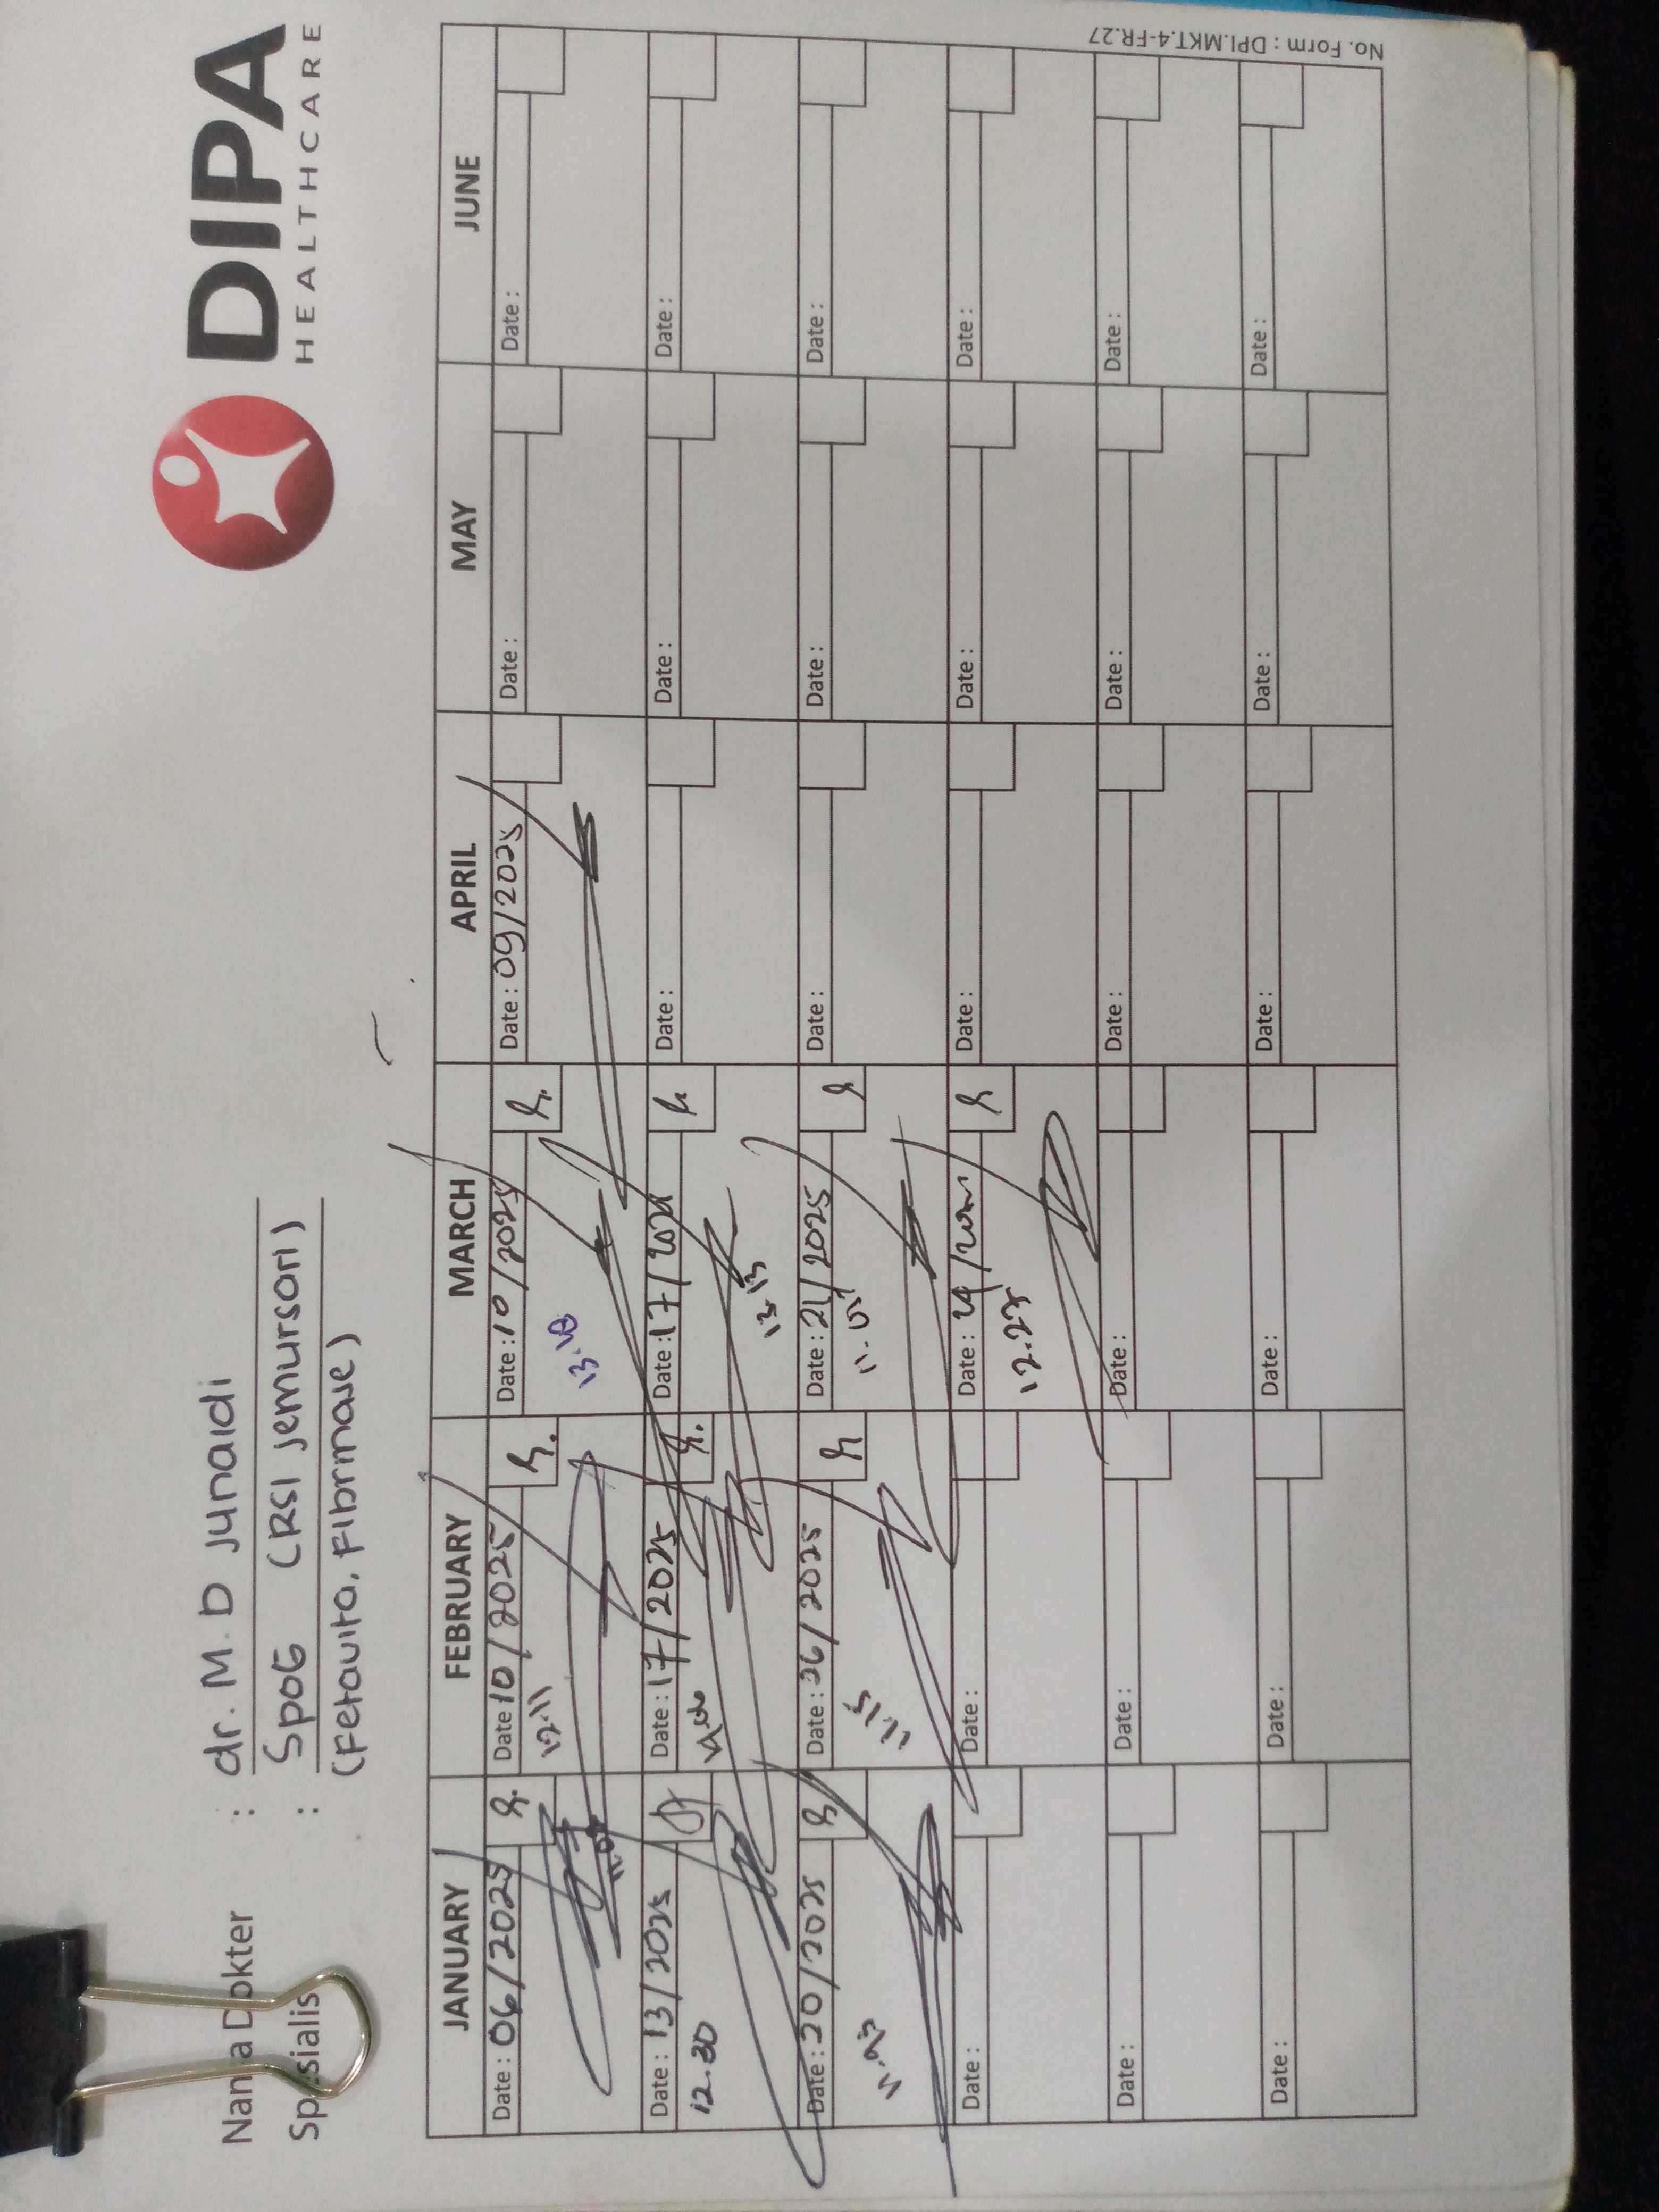 DIPA
HEALTHCARE
Nama Dokter : dr. M. D Junaidi
Spesialis : SpOG (RSI jemursari)
(Fetavita, Fibrinase)
JANUARY FEBRUARY MARCH APRIL MAY JUNE
Date : 06/2025 Date 10/2025 Date : 10/2025 Date : 09/2025 Date : Date :
12.11 13.18
Date : 13/2025 Date : 17/2025 Date : 17/ Date : Date : Date :
12.30 12.13
Date : 20/2025 Date : 26/2025 Date : 21/2025 Date : Date : Date :
Date : Date : Date : 24/ Date : Date : Date :
12.27
Date : Date : Date : Date : Date : Date :
Date : Date : Date : Date : Date : Date :
No. Form : DPI.MKT.4-FR.27